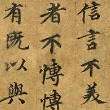 信言不美
者不博博
有既以與